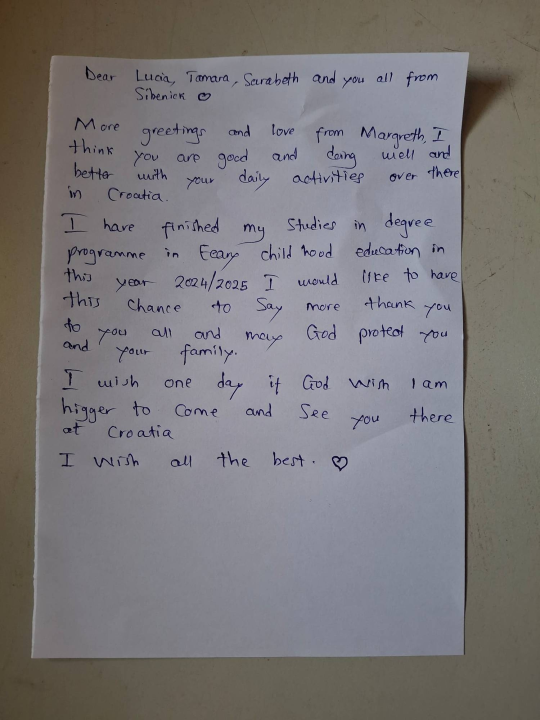 Dear Lucia, Tamara, Sarabeth and you all from
Sibenick ♡
More greetings and love from Margreth, I
think you are good and doing well and
better with your daily activities over there
in Croatia.
I have finished my Studies in degree
programme in Eeary child hood education in
this year 2024/2025 I would like to have
this chance to Say more thank you
to you all and may God protect you
and your family.
I wish one day if God wish I am
higger to come and See you there
at Croatia
I Wish all the best. ♡